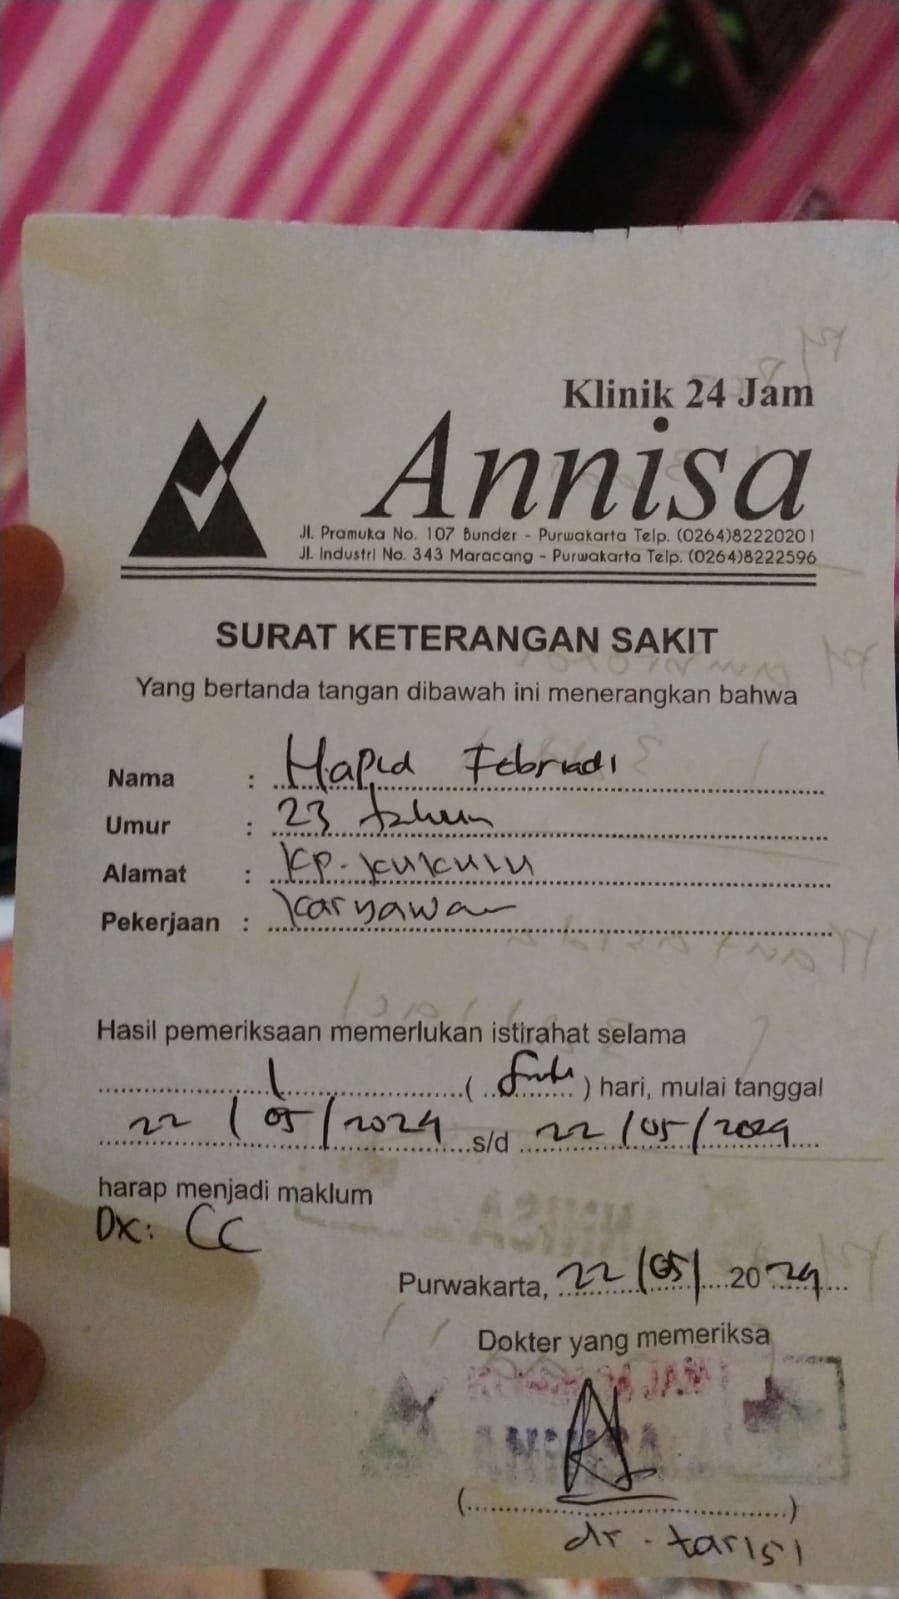 Klinik 24 Jam
Annisa
Jl. Pramuka No. 107 Bunder - Purwakarta Telp. (0264)82220201
Jl. Industri No. 343 Maracang - Purwakarta Telp. (0264)8222596
SURAT KETERANGAN SAKIT
Yang bertanda tangan dibawah ini menerangkan bahwa
Nama : Hapid Febriadi
Umur : 23 tahun
Alamat : Kp. Kukulu
Pekerjaan : Karyawan
Hasil pemeriksaan memerlukan istirahat selama
1 ( Satu ) hari, mulai tanggal
22/05/2024 s/d 22/05/2024
harap menjadi maklum
Dx: CC
Purwakarta, 22/05/2024
Dokter yang memeriksa
ANNISA
dr. tarisi